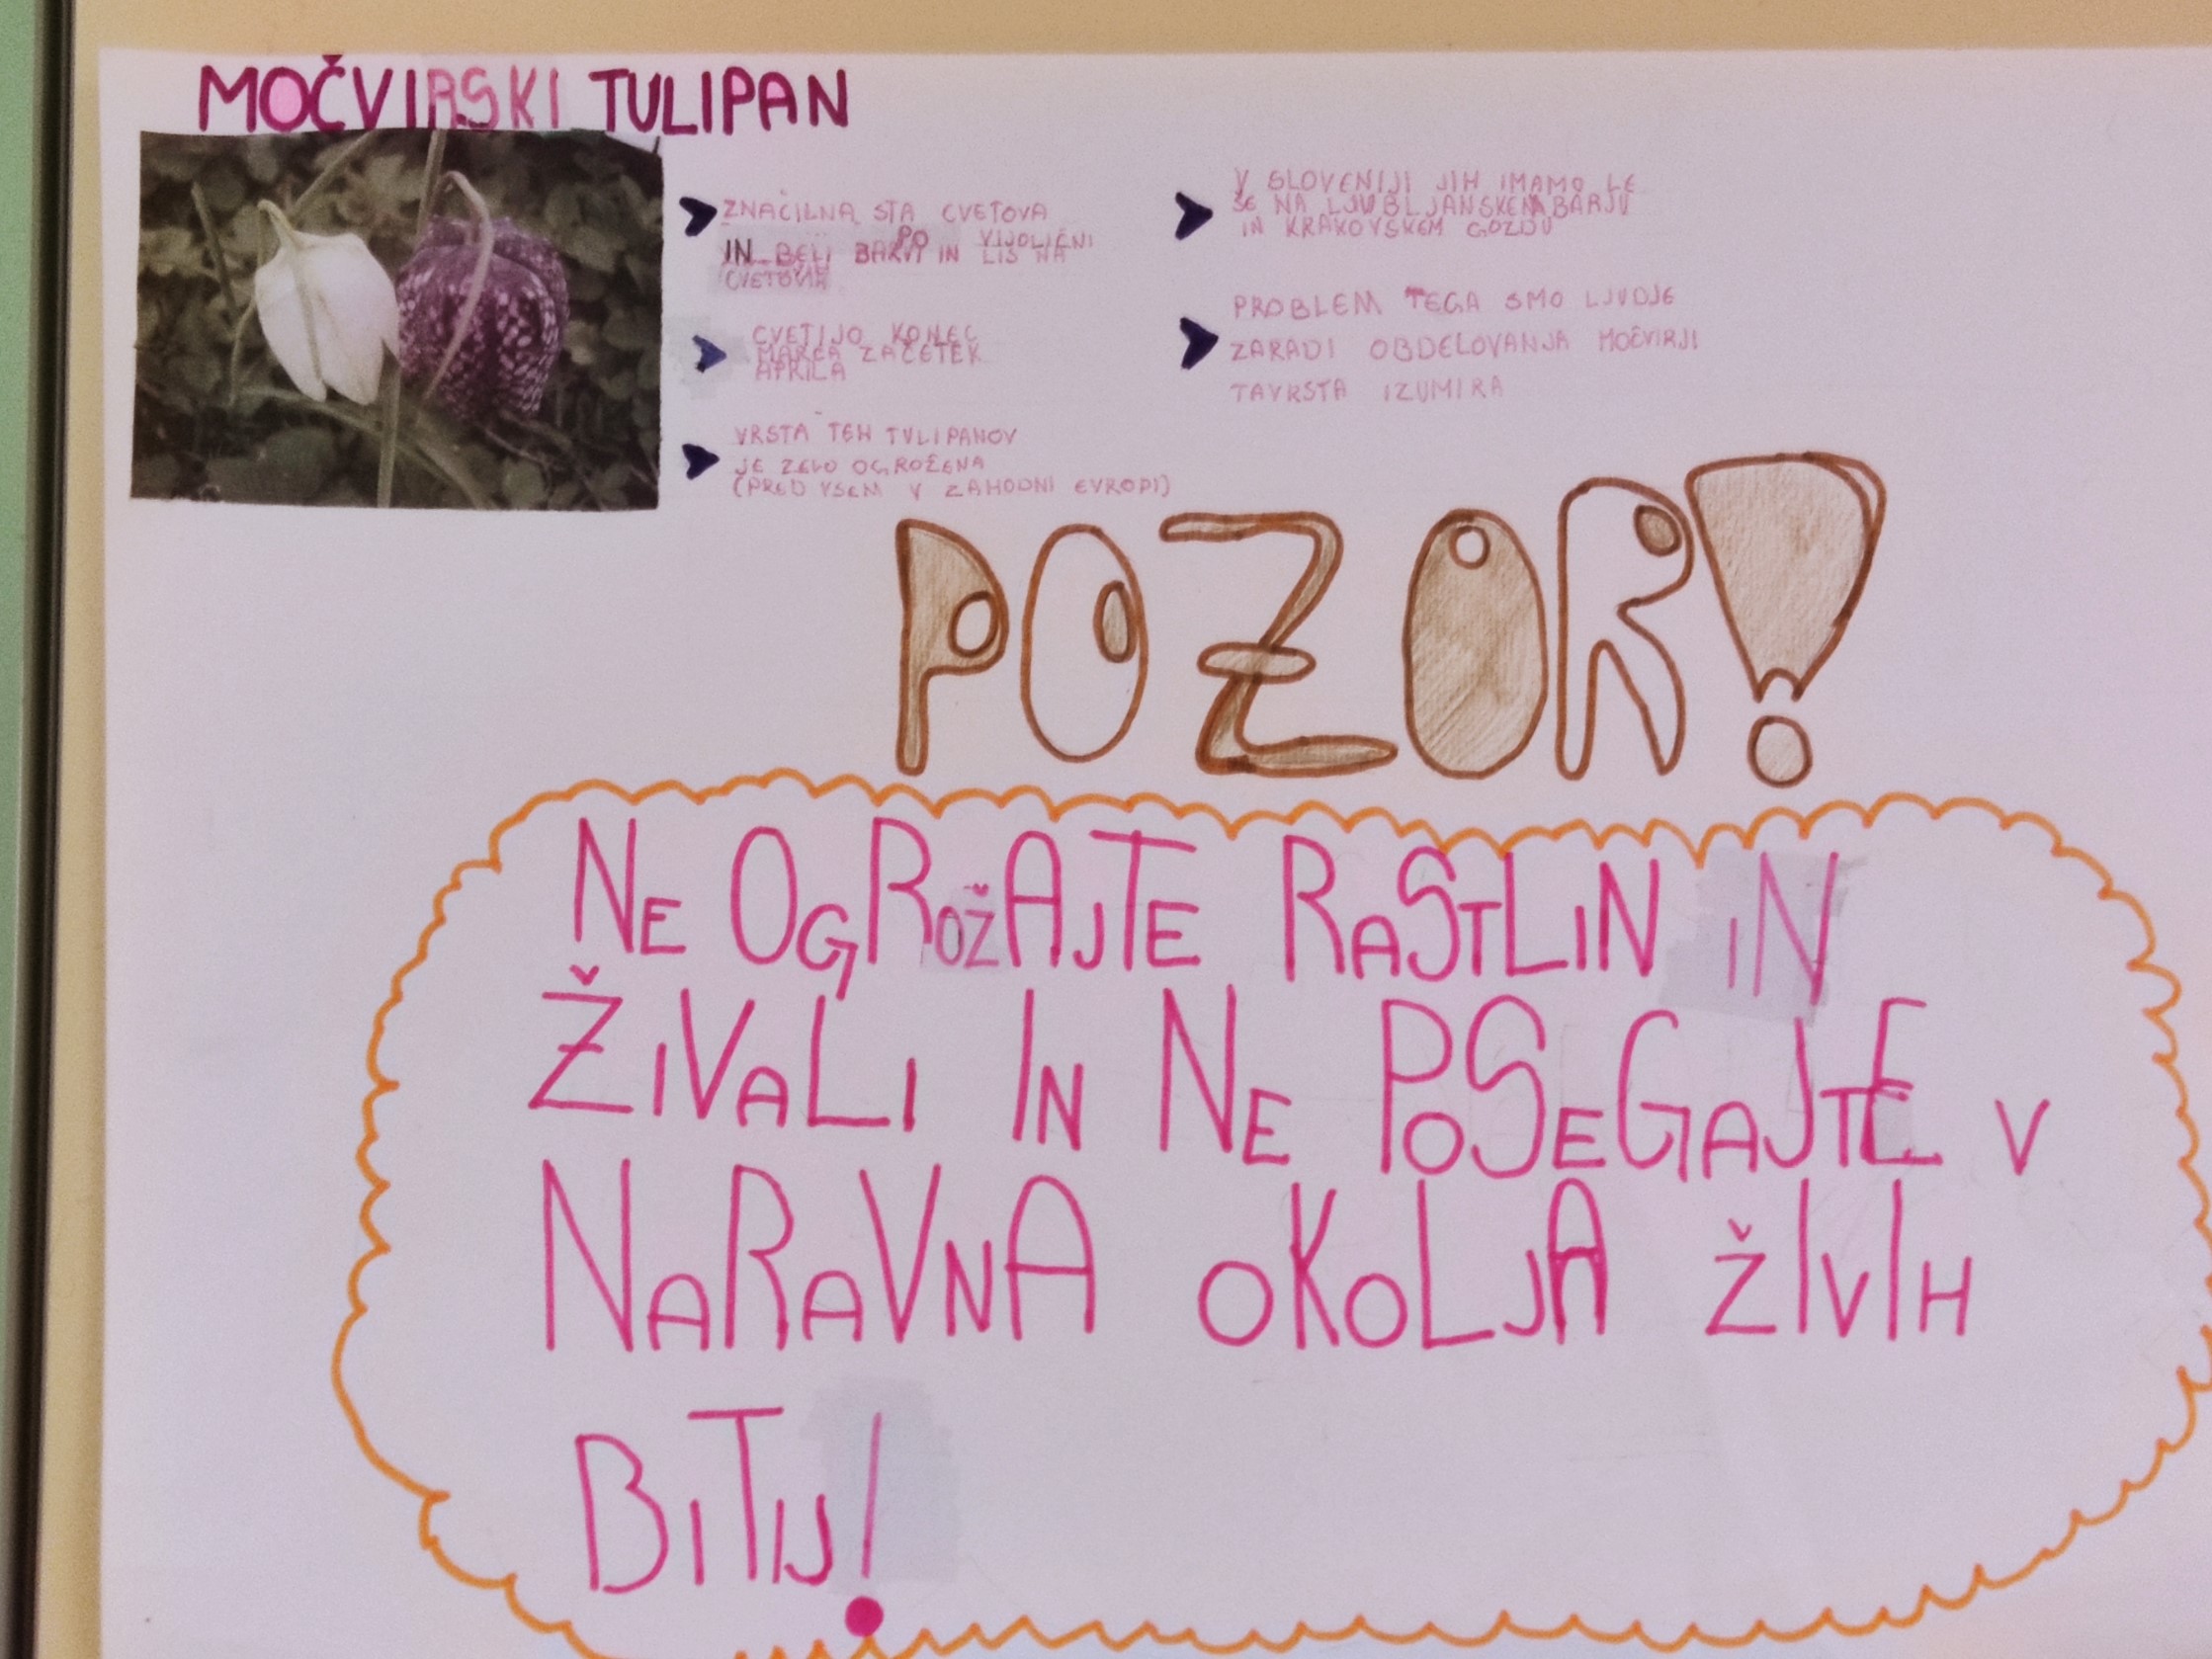 MOČVIRSKI TULIPAN
ZNAČILNA STA CVETOVA
PO VIJOLIČNI
IN BELI BARVI IN LIS NA
CVETOVIH
CVETIJO KONEC
MARCA ZAČETEK
APRILA
VRSTA TEH TULIPANOV
JE ZELO OGROŽENA
(PRED VSEM V ZAHODNI EVROPI)
V SLOVENIJI JIH IMAMO LE
ŠE NA LJUBLJANSKEM BARJU
IN KRAKOVSKEM GOZDU
PROBLEM TEGA SMO LJUDJE
ZARADI OBDELOVANJA MOČVIRJI
TAVRSTA IZUMIRA
POZOR!
NE OGROŽAJTE RASTLIN IN
ŽIVALI IN NE POSEGAJTE V
NARAVNA OKOLJA ŽIVIH
BITIJ!